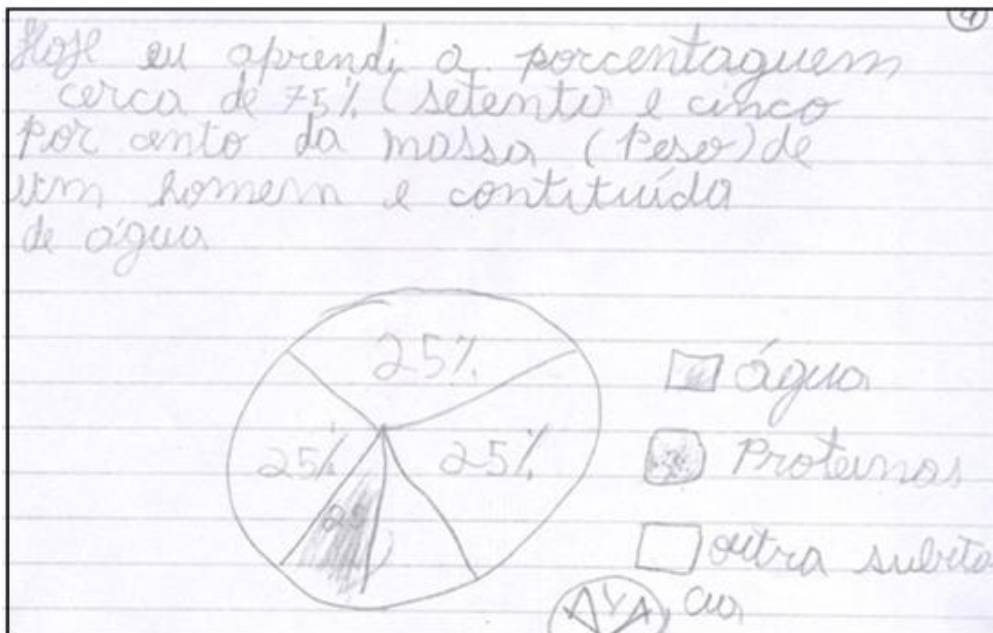 Hoje eu aprendi a porcentaguem
cerca de 75% (setenta e cinco
por cento da massa (Peso) de
um homem e contituída
de água
25%
25%
25%
água
Proteinas
outra